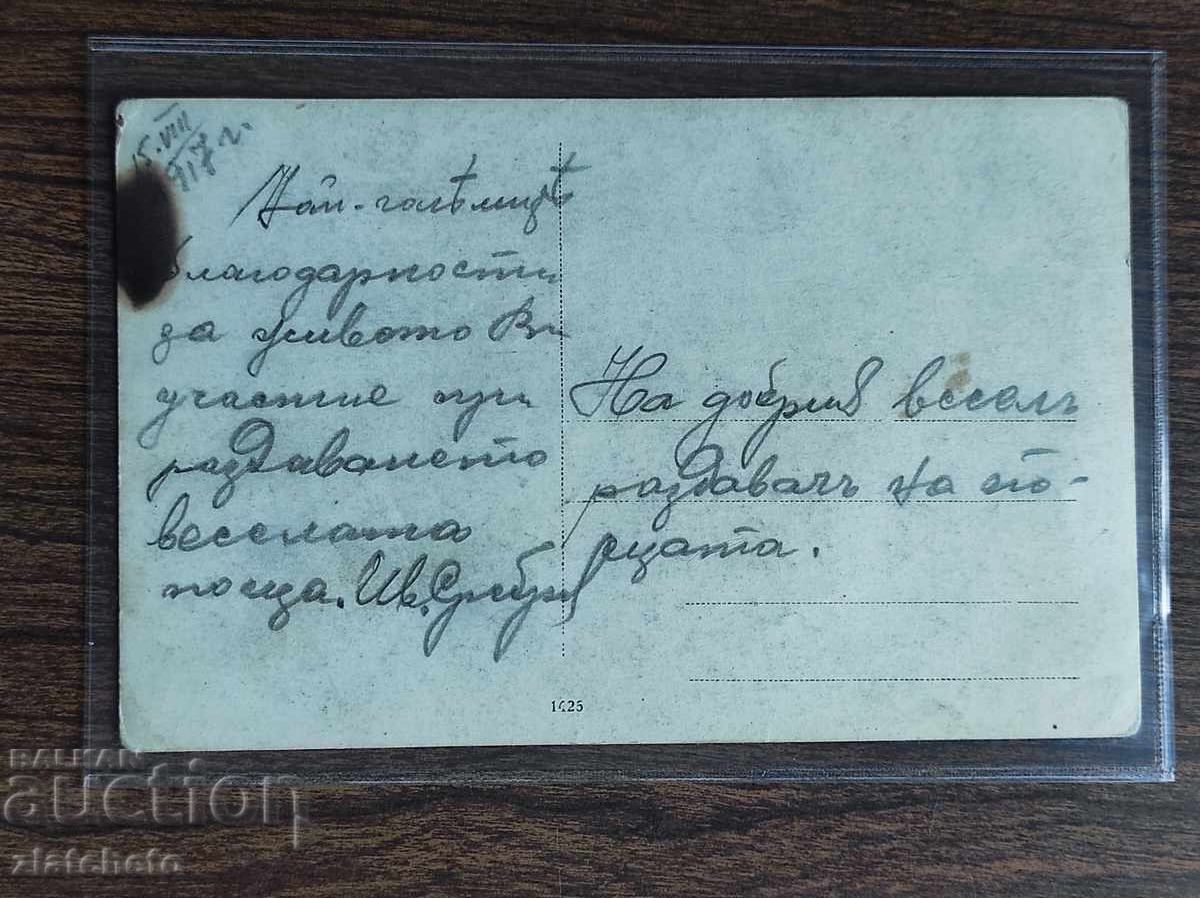 15.VIII
917 г.
Най-голѣмитѣ
благодарности
за живото Ви
участие при
раздаването
веселата
поща. Ив.
На добрия веселъ
раздавачъ на по-
щата.
1425
BALKAN
auction
zlatcheto